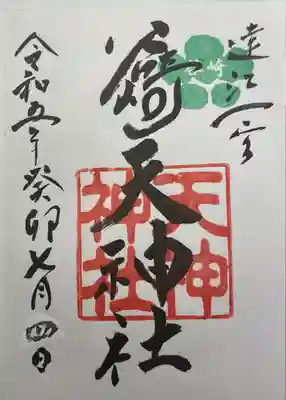 遠江一宮
崎天神社
天神
神社
令和五年癸卯七月四日